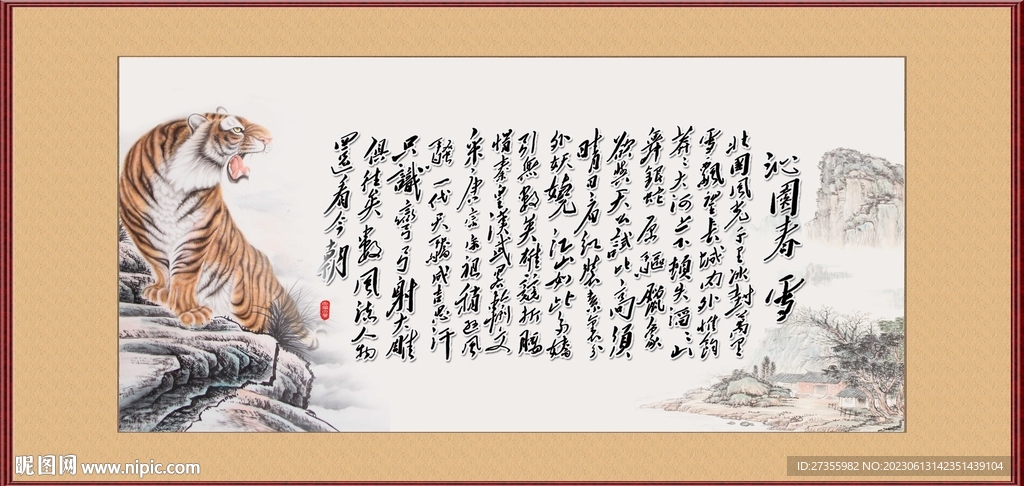 沁園春 雪
北國風光千里冰封萬里
雪飄望長城內外惟餘
莽々大河上下頓失滔々山
舞銀蛇原驅臘象
欲與天公試比高須
晴日看紅裝素裹分
外妖嬈江山如此多嬌
引無數英雄競折腰
惜秦皇漢武略輸文
采唐宗宋祖稍遜風
騷一代天驕成吉思汗
只識彎弓射大雕
俱往矣數風流人物
還看今朝
昵图网 www.nipic.com
ID:27355982 NO:20230613142351439104